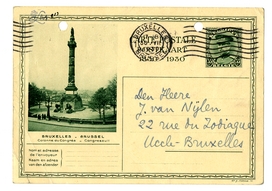 BRUXELLES
POSTALE
KAART
1830 1930
BRUXELLES — BRUSSEL
Colonne du Congrès — Congreszuil
Nom et adresse
de l'envoyeur
Naam en adres
van den afzender
Den Heere
J. van Nijlen
22 rue du Zodiaque
Uccle-Bruxelles